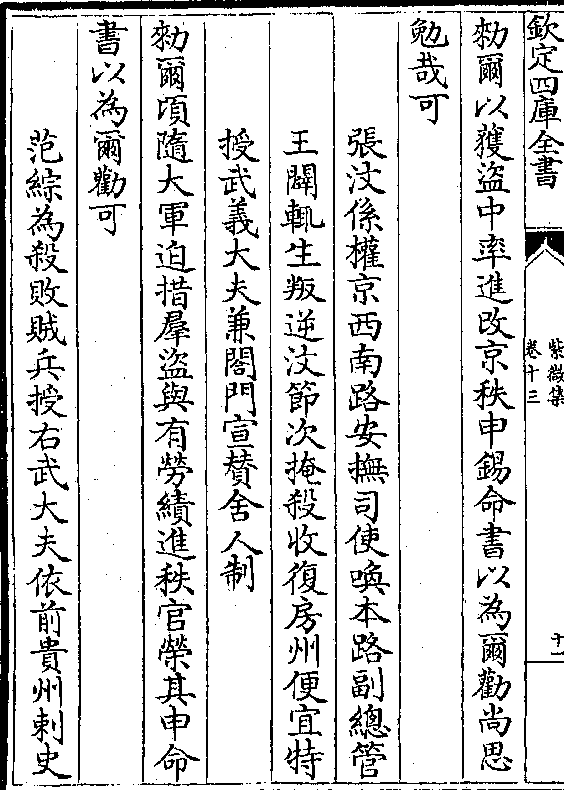 欽定四庫全書
紫微集
卷十三
十一
勑爾以獲盜中率進改京秩申錫命書以為爾勸尚思
勉哉可
張汶係權京西南路安撫司使喚本路副總管
王闢輒生叛逆汶節次掩殺收復房州便宜特
授武義大夫兼閤門宣賛舍人制
勑爾頃隨大軍迫措羣盜與有勞績進秩官榮其申命
書以為爾勸可
范綜為殺敗賊兵授右武大夫依前貴州刺史